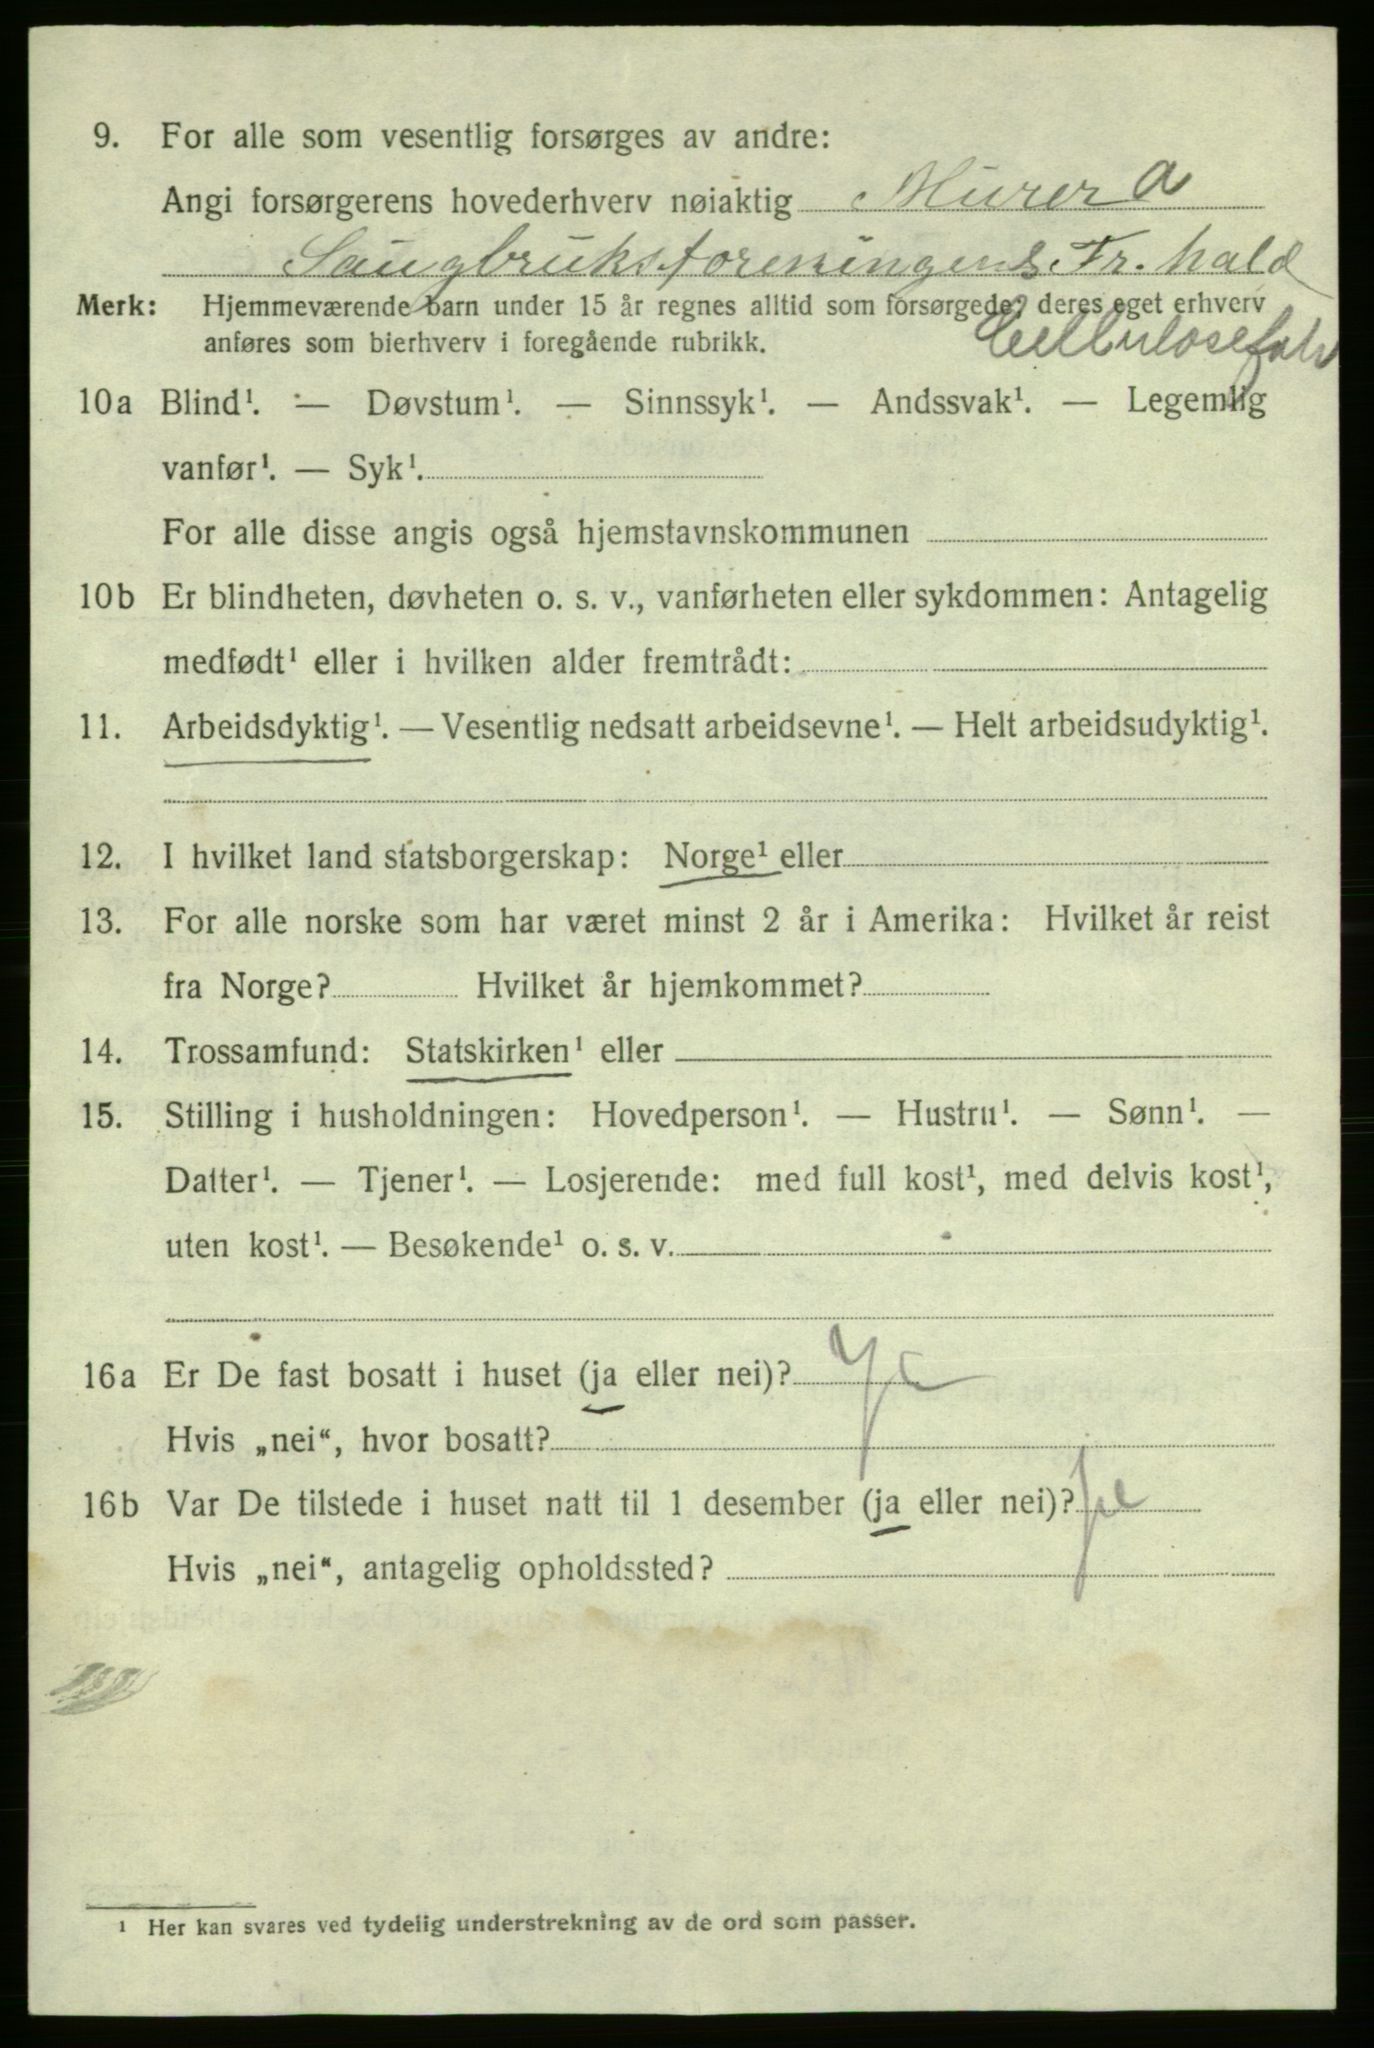 9. For alle som vesentlig forsørges av andre:
Angi forsørgerens hovederhverv nøiaktig Murer a
Saugbruksforeningens Fr.hald
Merk: Hjemmeværende barn under 15 år regnes alltid som forsørgede; deres eget erhverv
Cellulosefabr
anføres som bierhverv i foregående rubrikk.
10a Blind¹. — Døvstum¹. — Sinnssyk¹. — Andssvak¹. — Legemlig
vanfør¹. — Syk¹.
For alle disse angis også hjemstavnskommunen
10b Er blindheten, døvheten o. s. v., vanførheten eller sykdommen: Antagelig
medfødt¹ eller i hvilken alder fremtrådt:
11. Arbeidsdyktig¹. — Vesentlig nedsatt arbeidsevne¹. — Helt arbeidsudyktig¹.
12. I hvilket land statsborgerskap: Norge¹ eller
13. For alle norske som har været minst 2 år i Amerika: Hvilket år reist
fra Norge? Hvilket år hjemkommet?
14. Trossamfund: Statskirken¹ eller
15. Stilling i husholdningen: Hovedperson¹. — Hustru¹. — Sønn¹. —
Datter¹. — Tjener¹. — Losjerende: med full kost¹, med delvis kost¹,
uten kost¹. — Besøkende¹ o. s. v.
16a Er De fast bosatt i huset (ja eller nei)? Ja
Hvis „nei“, hvor bosatt?
16b Var De tilstede i huset natt til 1 desember (ja eller nei)? Ja
Hvis „nei“, antagelig opholdssted?
¹ Her kan svares ved tydelig understrekning av de ord som passer.